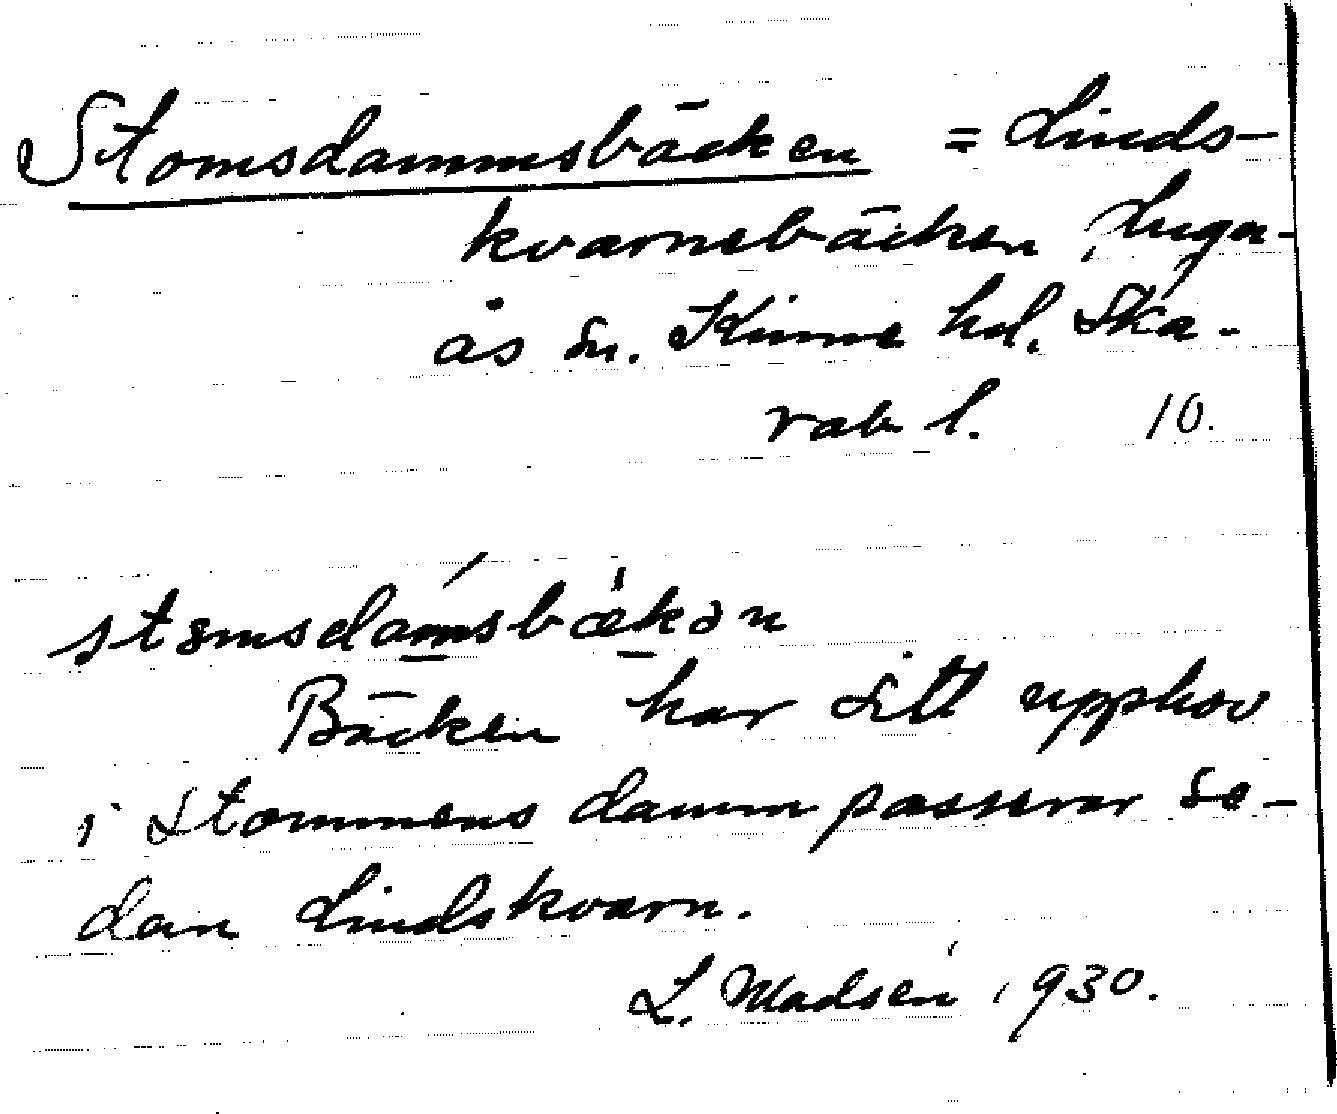 Stomsdammsbäcken = Linds-
kvarnebäcken, Luga-
ås sn. Kinne hd. Ska-
rab l. 10.
stomsdámsbækən
Bäcken har sitt upphov
i Stommens damm passerar se-
dan Lindskvarn.
L. Madsén 1930.